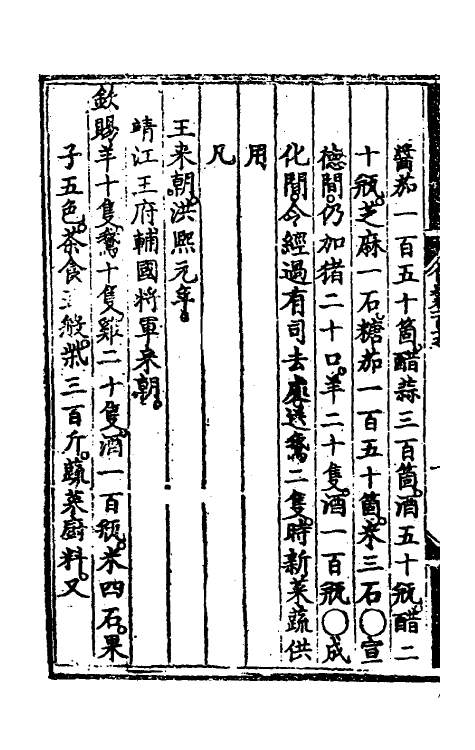 醬茄一百五十箇。醋蒜三百箇。酒五十瓶。醋二
十瓶。芝麻一石。糖茄一百五十箇。米三石〇宣
德間。仍加猪二十口。羊二十隻。酒一百瓶〇成
化間。今經過有司去處送鵞二隻。時新菜蔬供
用
凡
王来朝。洪熙元年。
靖江王府輔國將軍来朝。
欽賜羊十隻。鵞十隻。雞二十隻。酒一百瓶。米四石。果
子五色。茶食五般。柴三百斤。蔬菜厨料。又